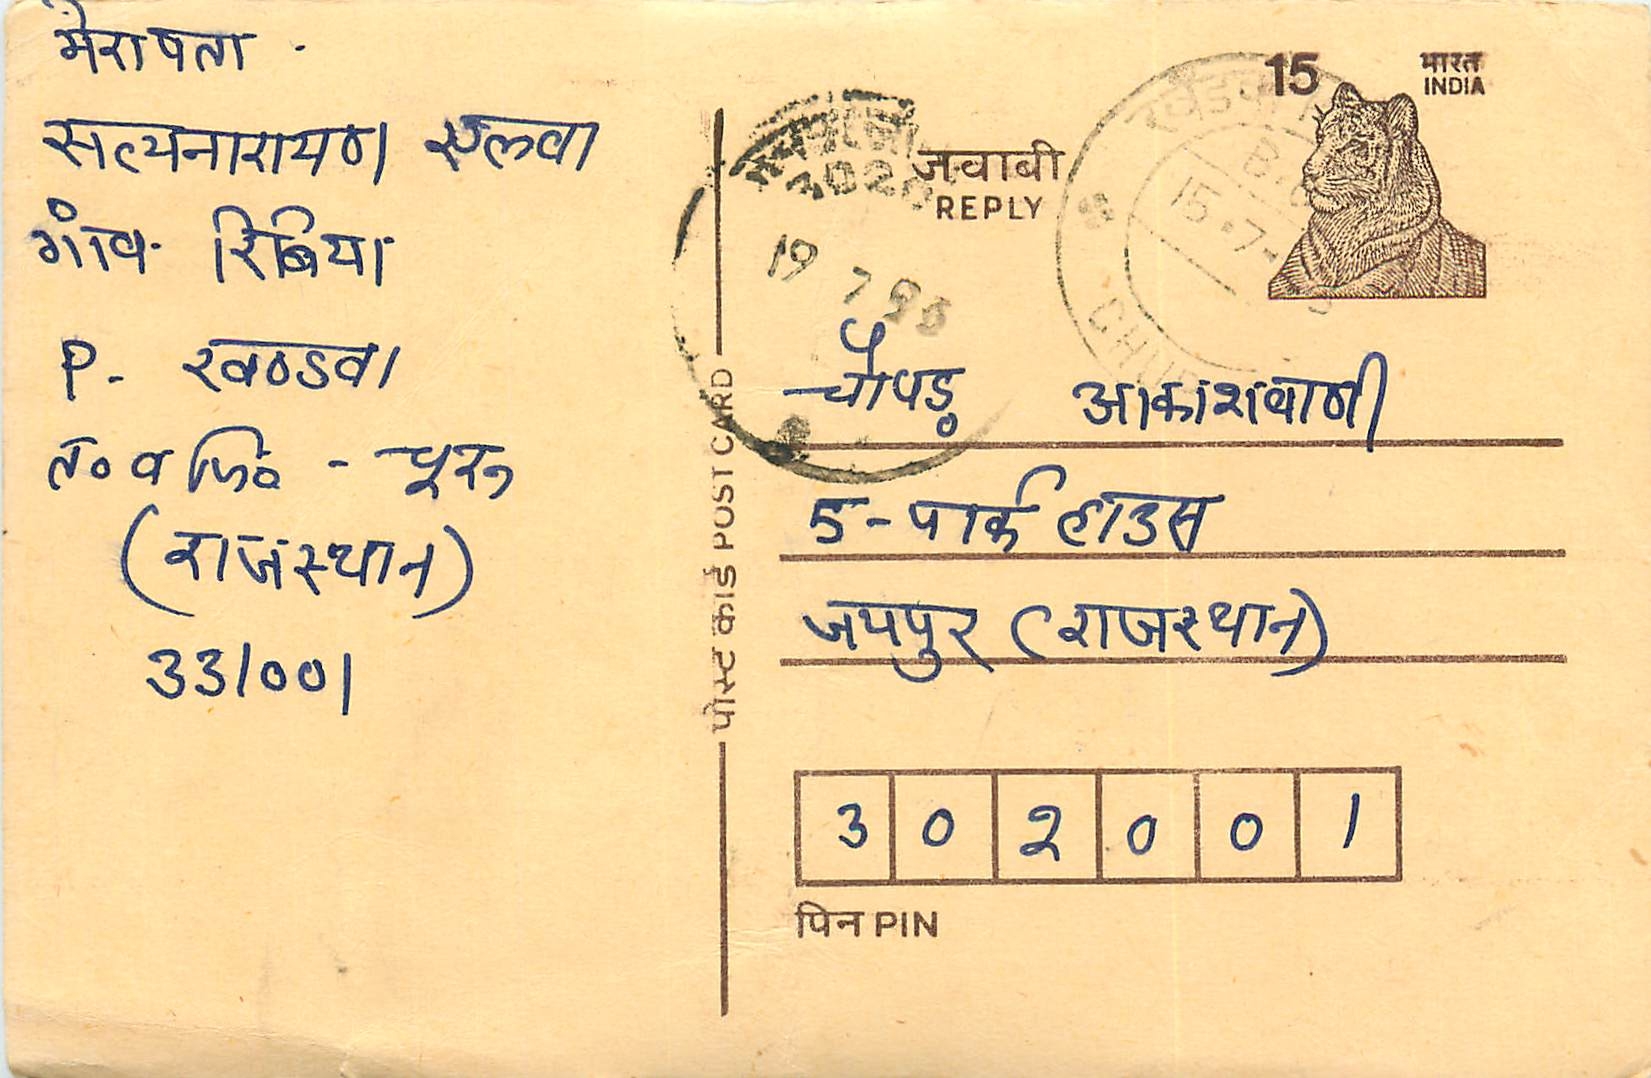 मेरा पता
सत्यनारायण
गांव रिबिया
P. खण्डवा
त० व जि० - चूरू
(राजस्थान)
331001
पोस्ट कार्ड POST CARD
जवाबी
REPLY
19 7 95
15
भारत
INDIA
15.7.
चौपड़ आकाशवाणी
5-पार्क हाउस
जयपुर (राजस्थान)
3 0 2 0 0 1
पिन PIN